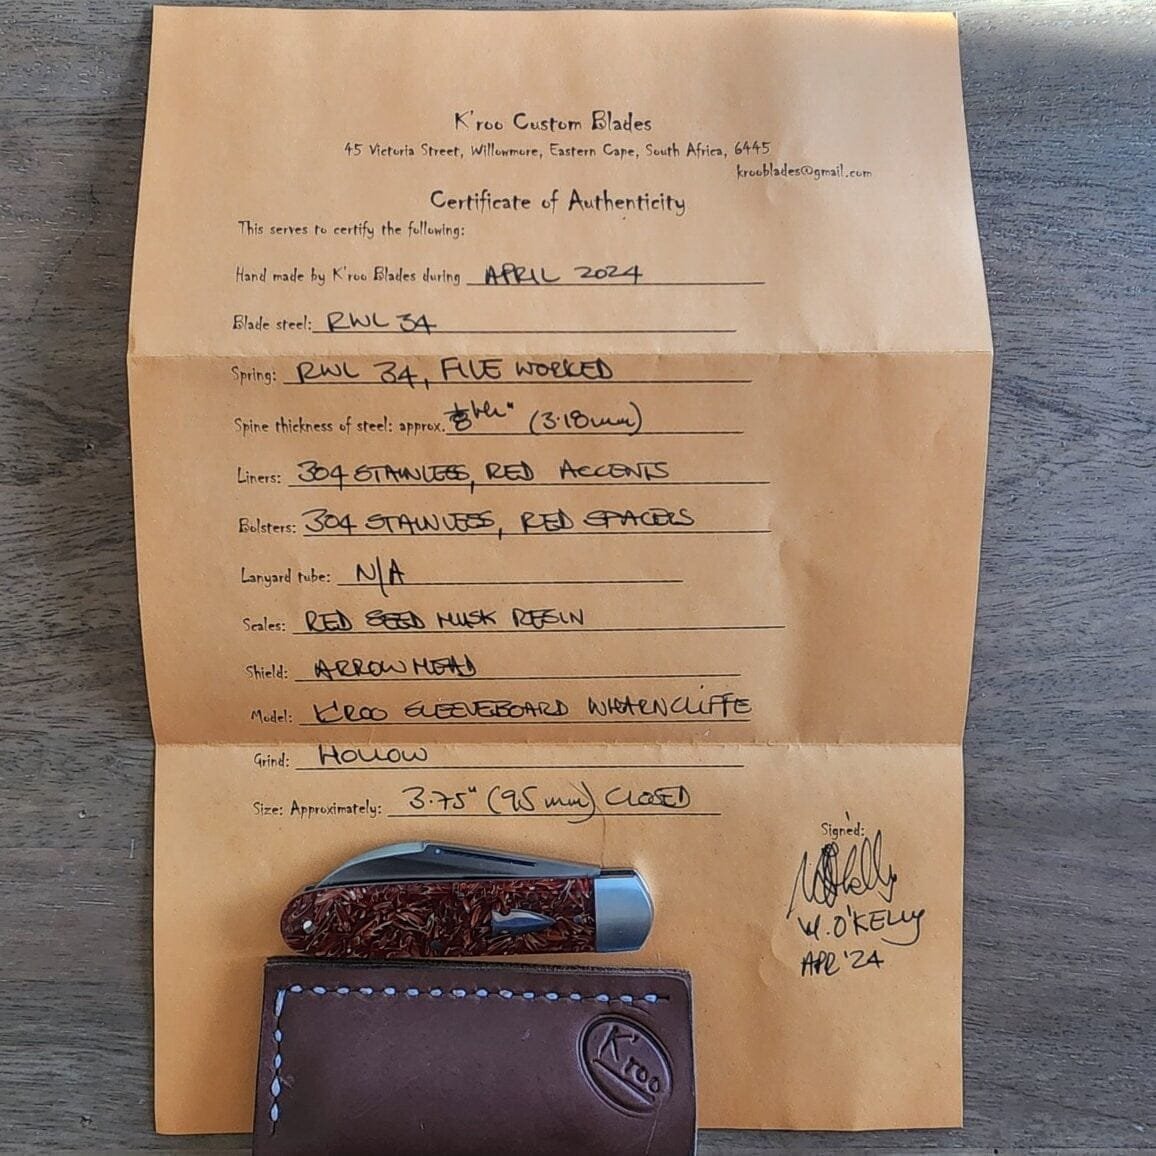 K'roo Custom Blades
45 Victoria Street, Willowmore, Eastern Cape, South Africa, 6445
krooblades@gmail.com
Certificate of Authenticity
This serves to certify the following:
Hand made by K'roo Blades during APRIL 2024
Blade steel: RWL 34
Spring: RWL 34, FILE WORKED
Spine thickness of steel: approx. (3.18mm)
Liners: 304 STAINLESS, RED ACCENTS
Bolsters: 304 STAINLESS, RED SPACERS
Lanyard tube: N/A
Scales: RED SEED HUSK RESIN
Shield: ARROWHEAD
Model: K'ROO SLEEVEBOARD WHARNCLIFFE
Grind: HOLLOW
Size: Approximately: 3.75" (95mm) CLOSED
Signed:
W. O'KELLY
APR '24
K'roo